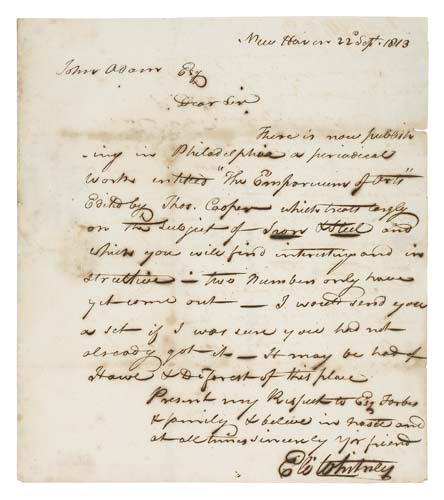 New Haven 22d Sept. 1813
John Adam Esq
Dear Sir
There is now publish
-ing in Philadelphia a periodical
Work intitled "The Emporium of Arts"
Edited by Thos. Cooper which treats largely
on the subject of Iron & Steel and
which you will find interesting and in
structive — two Numbers only have
yet come out — I would send you
a set if I was sure you had not
already got it — It may be had of
Howe & Deforest of this place
Present my Respect to Esq Forbes
& family & believe in haste and
at all times sincerely Yor friend
Eli Whitney